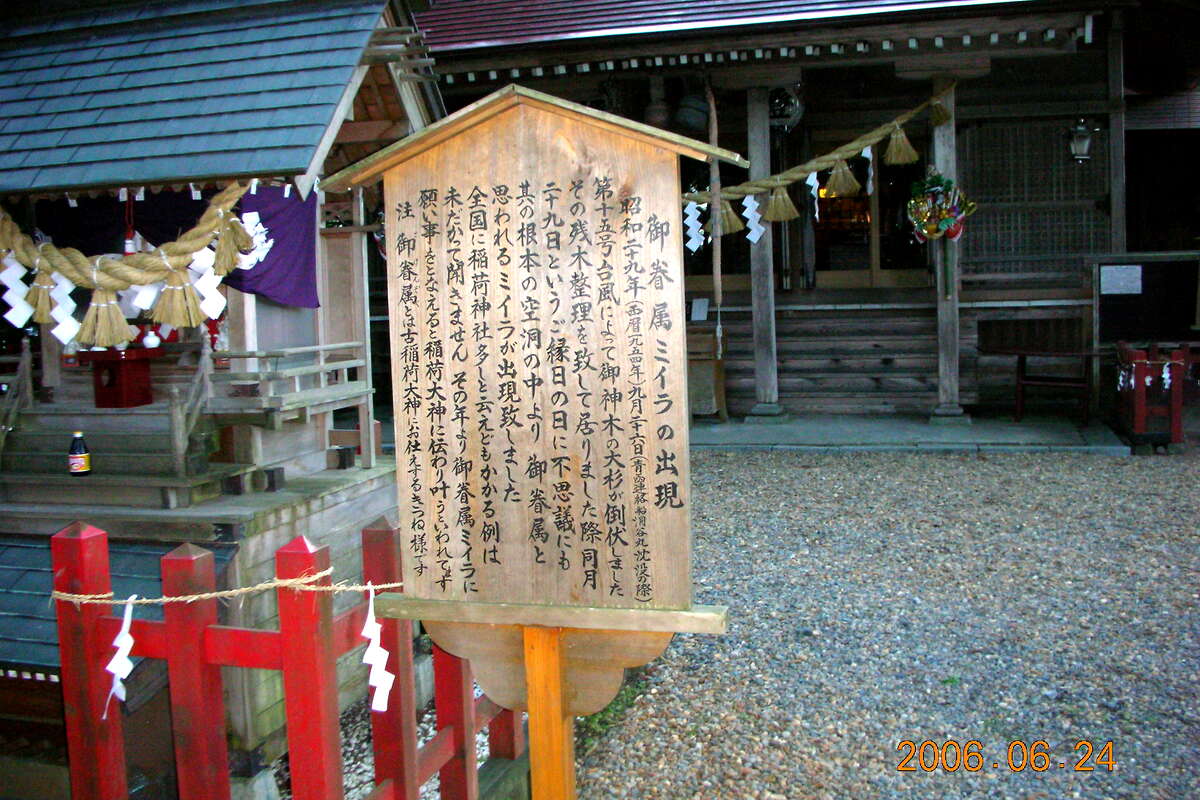 御眷属ミイラの出現
昭和二十九年(西暦一九五四年)九月二十六日(青函連絡船洞爺丸沈没の際)
第十五号台風によって御神木の大杉が倒伏しました
その残木整理を致して居りました際同月
二十九日というご縁日の日に不思議にも
其の根本の空洞の中より 御眷属と
思われるミイラが出現致しました
全国に稲荷神社多しと云えどもかかる例は
未だかつて聞きません その年より御眷属ミイラに
願い事をとなえると稲荷大神に伝わり叶うといわれてます
注 御眷属とは古稲荷大神にお仕えするきつね様です
2006.06.24